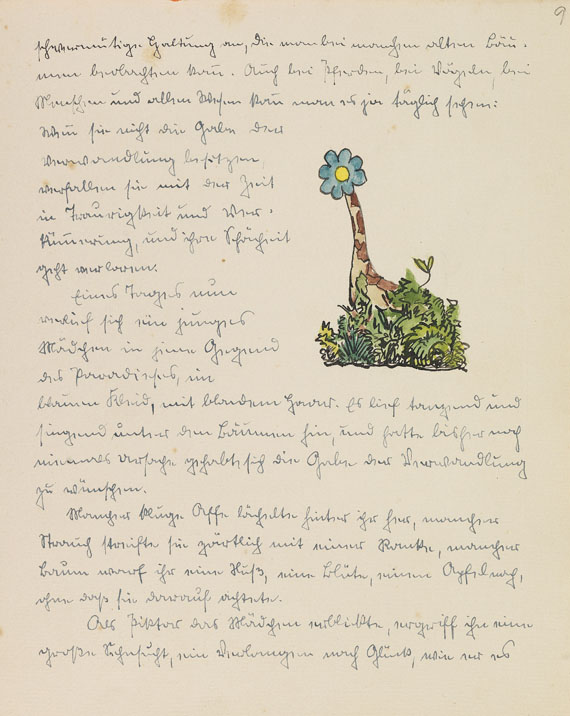 9
schwermütige Haltung an, die man bei manchen alten Bäu-
men beobachten kann. Auch bei Pferden, bei Vögeln, bei
Menschen und allen Wesen kann man es ja täglich sehen:
Wenn sie nicht die Gabe der
Verwandlung besitzen,
verfallen sie mit der Zeit
in Traurigkeit und Ver-
kümmerung, und ihre Schönheit
geht verloren.
Eines Tages nun
verlief sich ein junges
Mädchen in jene Gegend
des Paradieses, im
blauen Kleid, mit blondem Haar. Es lief tanzend und
singend unter den Bäumen hin, und hatte bisher noch
niemals Ursache gehabt, sich die Gabe der Verwandlung
zu wünschen.
Mancher kluge Affe lächelte hinter ihr her, mancher
Strauch streifte sie zärtlich mit einer Ranke, mancher
Baum warf ihr eine Nuß, eine Blüte, einen Apfel nach,
ohne daß sie darauf achtete.
Als Piktor das Mädchen erblickte, ergriff ihn eine
große Sehnsucht, ein Verlangen nach Glück, wie er es